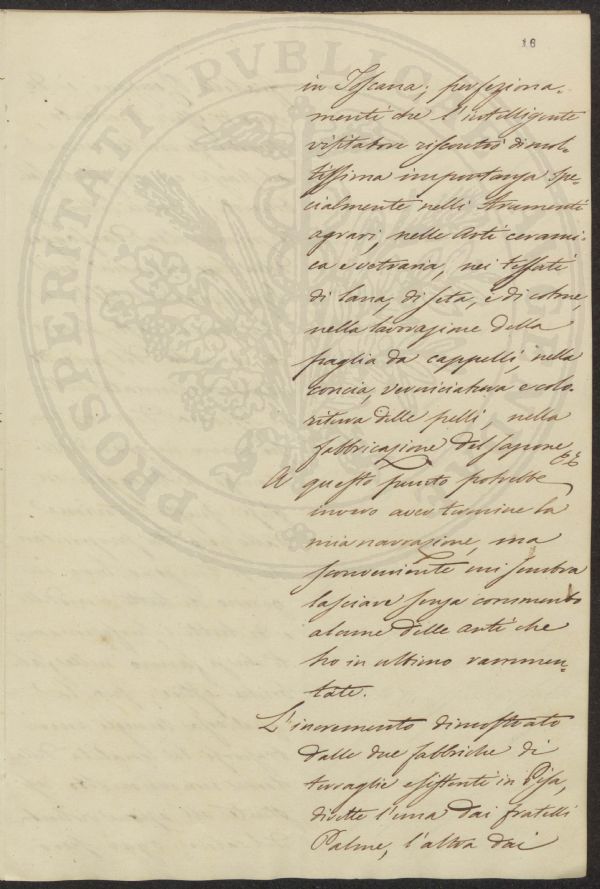 16
in Toscana; perfeziona-
menti che l'intelligente
visitatore riscontrò di mol-
tissima importanza spe-
cialmente nelli strumenti
agrari, nelle arti cerami-
ca e vetraria, nei tessuti
di lana, di seta, e di cotone,
nella lavorazione della
paglia da cappelli, nella
concia, verniciatura e colo-
ritura delle pelli, nella
fabbricazione del sapone &&
A questo punto potrebbe
invero aver termine la
mia narrazione, ma
sconveniente mi sembra
lasciare senza commento
alcune delle arti che
ho in ultimo rammen-
tate.
L'incremento dimostrato
dalle due fabbriche di
terraglie esistenti in Pisa,
dirette l'una dai fratelli
Palme, l'altra dai
PROSPERITATI PVBLICAE